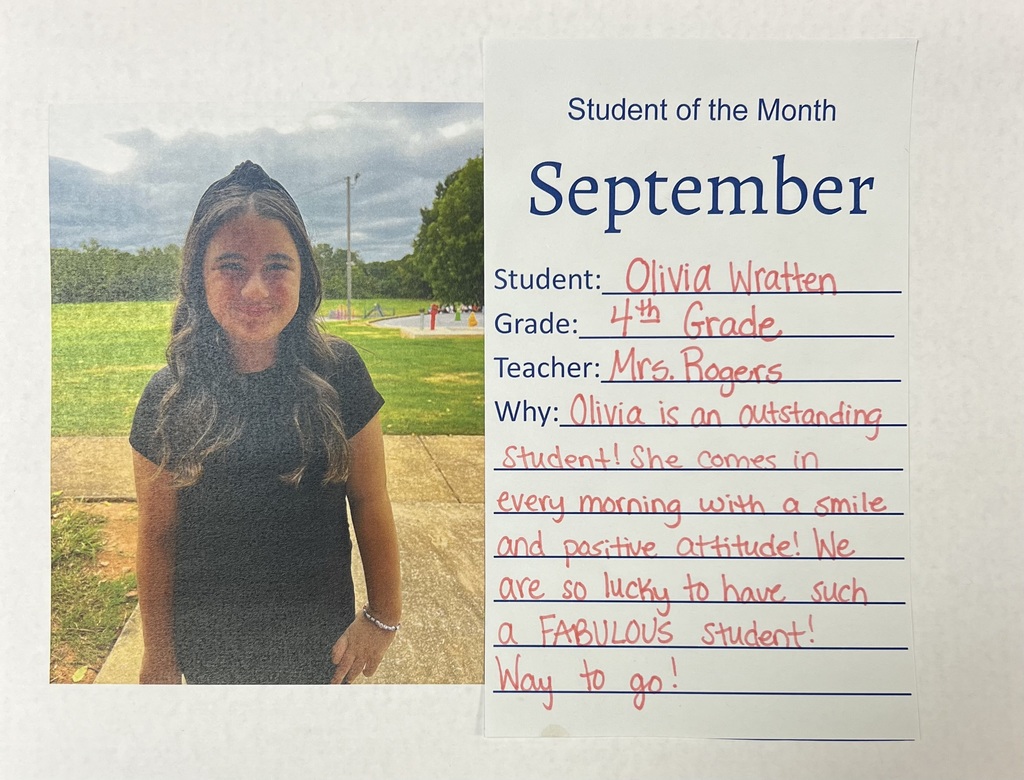 Student of the Month
September
Student: Olivia Wratten
Grade: 4th Grade
Teacher: Mrs. Rogers
Why: Olivia is an outstanding
student! She comes in
every morning with a smile
and positive attitude! We
are so lucky to have such
a FABULOUS student!
Way to go!